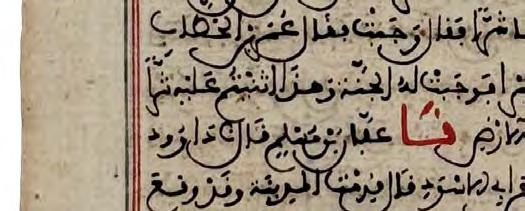 شرا فقال وجبت فقال عمر بن الخطاب
را فوجبت له الجنة وهذا اثنيتم عليه شرا
الارض ثنا عفان بن مسلم قال نا داود
ابي الاسود قال قدمت المدينة وقد وقع